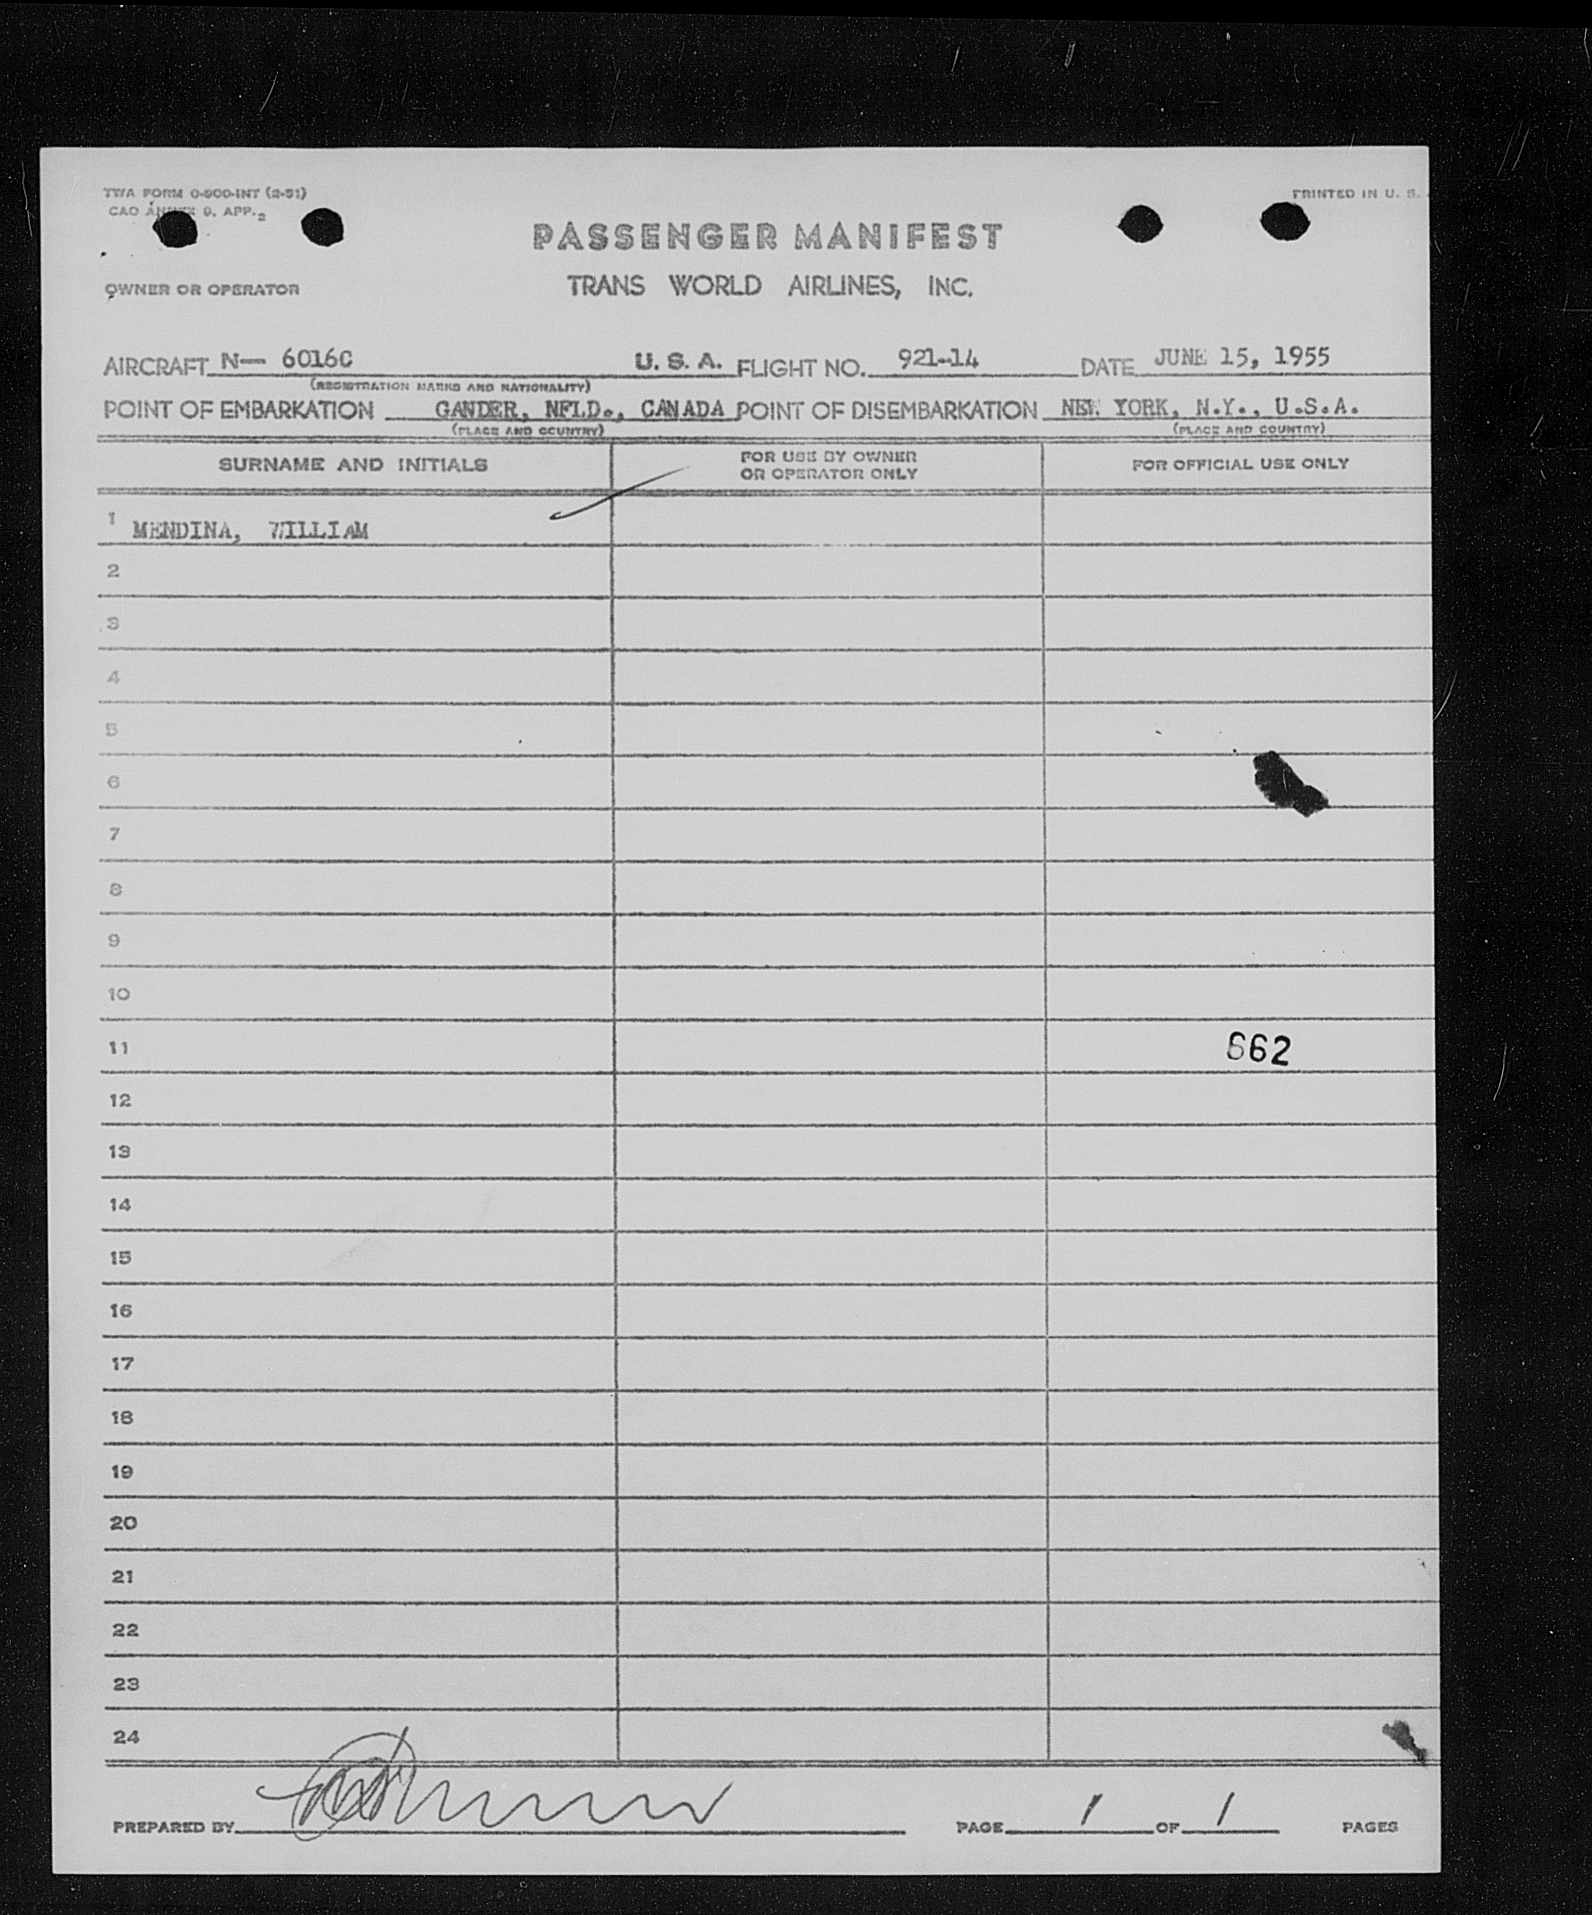 TWA FORM 0-900-INT (2-51)
PRINTED IN U. S.
CAO ANNEX 9. APP. 2
PASSENGER MANIFEST
OWNER OR OPERATOR
TRANS WORLD AIRLINES, INC.
AIRCRAFT N— 6016C U. S. A. FLIGHT NO. 921-14 DATE JUNE 15, 1955
(REGISTRATION MARKS AND NATIONALITY)
POINT OF EMBARKATION GANDER, NFLD., CANADA POINT OF DISEMBARKATION NEW YORK, N.Y., U.S.A.
(PLACE AND COUNTRY) (PLACE AND COUNTRY)
SURNAME AND INITIALS
FOR USE BY OWNER
OR OPERATOR ONLY
FOR OFFICIAL USE ONLY
1 MENDINA, WILLIAM
2
3
4
5
6
7
8
9
10
11 662
12
13
14
15
16
17
18
19
20
21
22
23
24
PREPARED BY PAGE 1 OF 1 PAGES